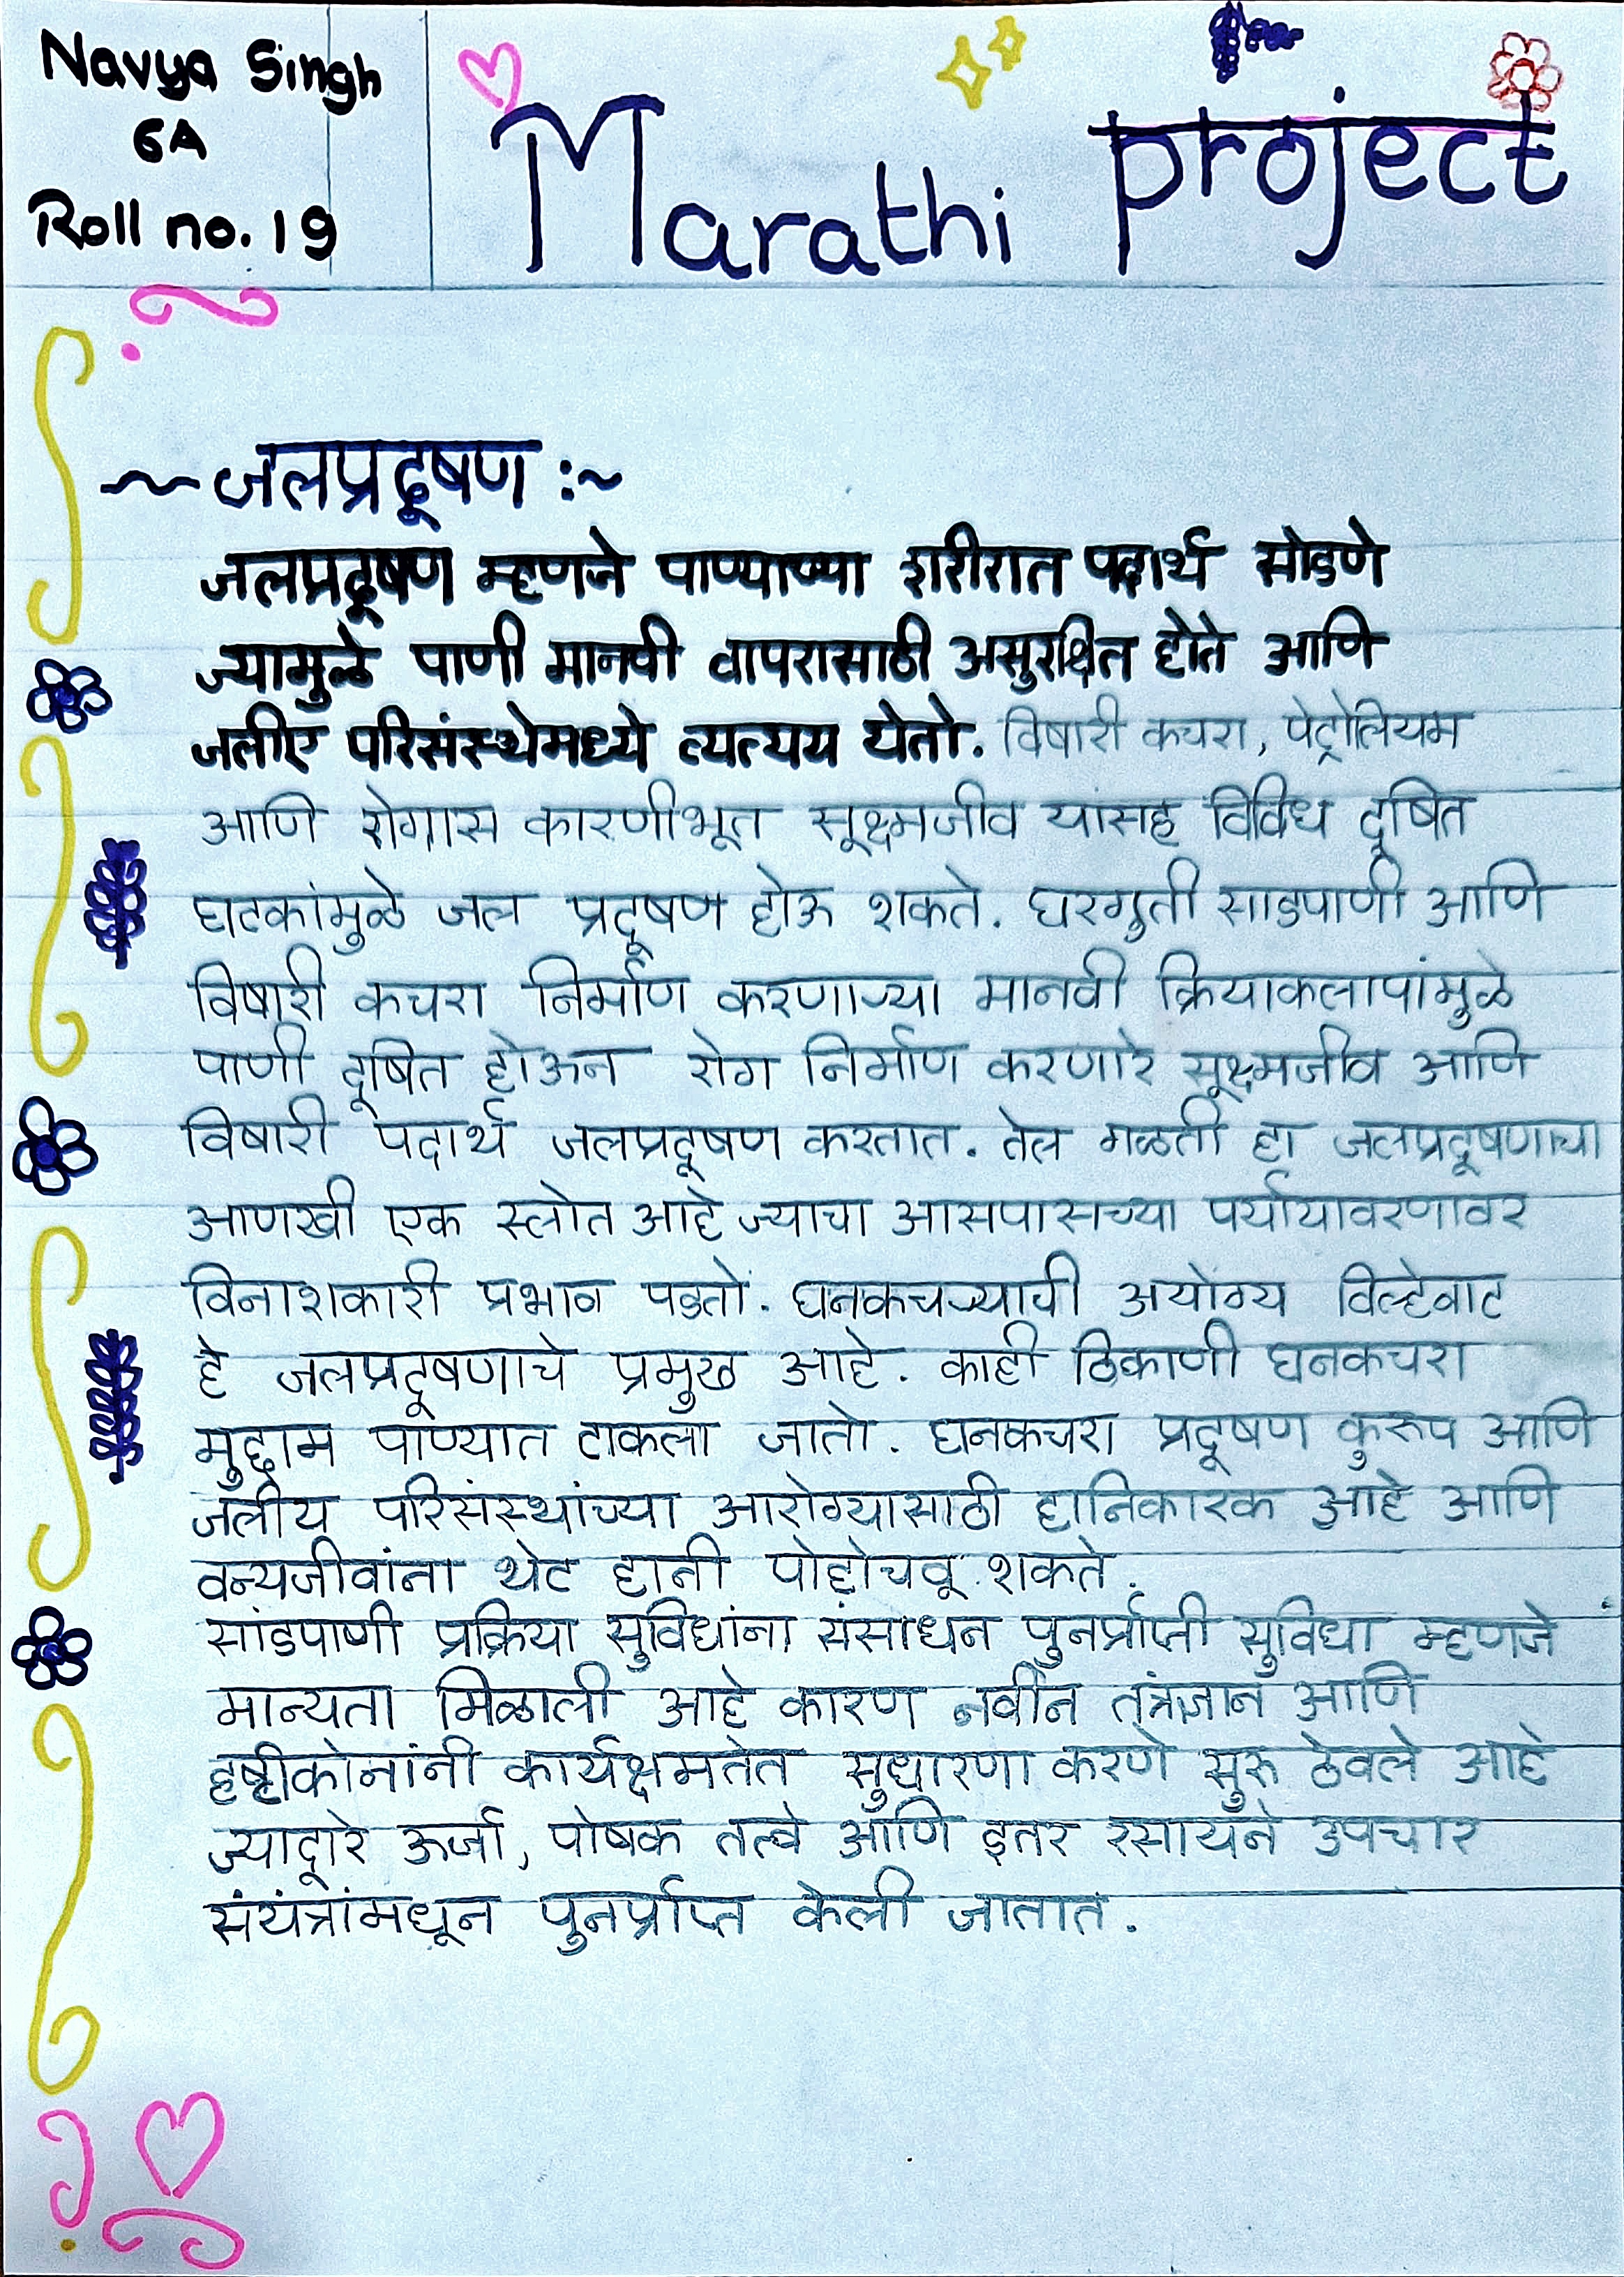 Navya Singh
6A
Roll no. 19
Marathi project
~ जलप्रदूषण :~
जलप्रदूषण म्हणजे पाण्याच्या शरीरात पदार्थ सोडणे
ज्यामुळे पाणी मानवी वापरासाठी असुरक्षित होते आणि
जलीए परिसंस्थेमध्ये व्यत्यय येतो. विषारी कचरा, पेट्रोलियम
आणि रोगास कारणीभूत सूक्ष्मजीव यांसह विविध दूषित
घटकांमुळे जल प्रदूषण होऊ शकते. घरगुती साडपाणी आणि
विषारी कचरा निर्माण करणाऱ्या मानवी क्रियाकलापांमुळे
पाणी दूषित होऊन रोग निर्माण करणारे सूक्ष्मजीव आणि
विषारी पदार्थ जलप्रदूषण करतात. तेल गळती हा जलप्रदूषणाचा
आणखी एक स्त्रोत आहे ज्याचा आसपासच्या पर्यायावरणावर
विनाशकारी प्रभाव पडतो. घनकचऱ्याची अयोग्य विल्हेवाट
हे जलप्रदूषणाचे प्रमुख आहे. काही ठिकाणी घनकचरा
मुद्दाम पाण्यात टाकला जातो. घनकचरा प्रदूषण कुरूप आणि
जलीय परिसंस्थांच्या आरोग्यासाठी हानिकारक आहे आणि
वन्यजीवांना थेट हानी पोहोचवू शकते.
सांडपाणी प्रक्रिया सुविधांना संसाधन पुनर्प्राप्ती सुविधा म्हणजे
मान्यता मिळाली आहे कारण नवीन तंत्रज्ञान आणि
दृष्टीकोनांनी कार्यक्षमतेत सुधारणा करणे सुरु ठेवले आहे
ज्याद्वारे ऊर्जा, पोषक तत्वे आणि इतर रसायने उपचार
संयंत्रांमधून पुनर्प्राप्त केली जातात.